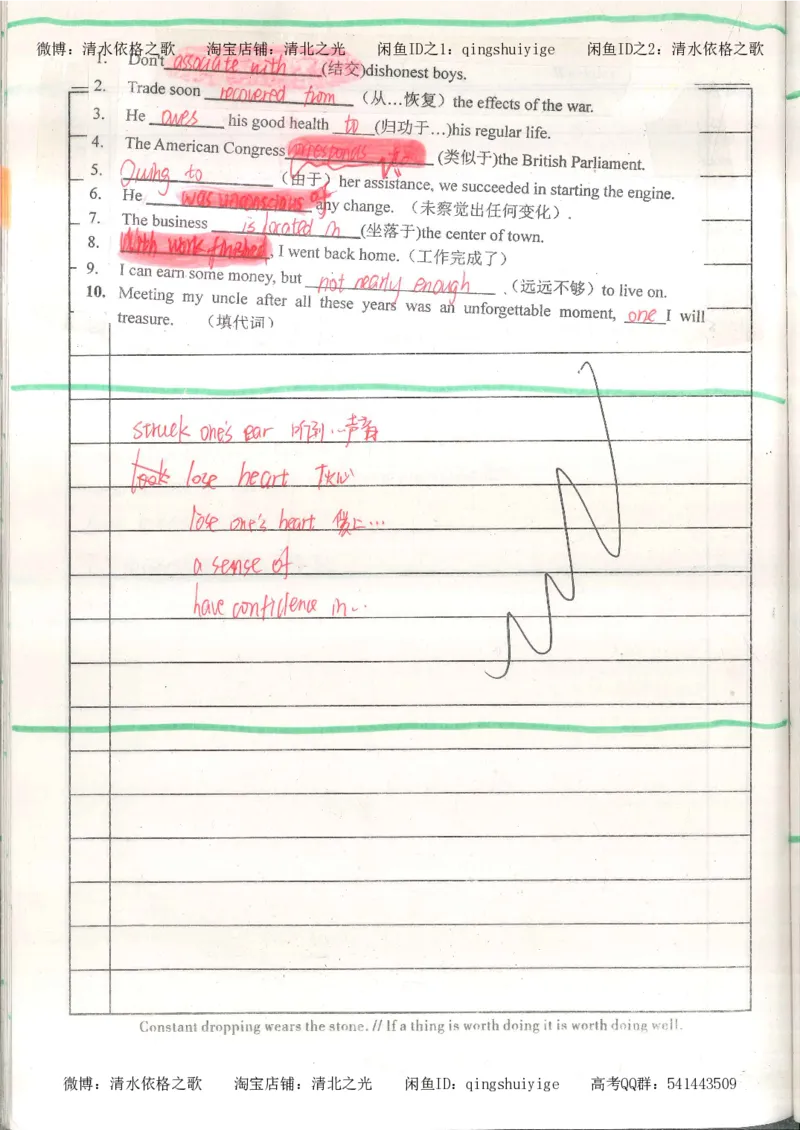 微博：清水依格之歌 淘宝店铺：清北之光 闲鱼ID之1：qingshuiyige 闲鱼ID之2：清水依格之歌
1. Don't associate with (结交)dishonest boys.
2. Trade soon recovered from （从…恢复）the effects of the war.
3. He owes his good health to (归功于…)his regular life.
4. The American Congress corresponds to (类似于)the British Parliament.
5. Owing to （由于）her assistance, we succeeded in starting the engine.
6. He was unconscious of any change. （未察觉出任何变化）.
7. The business is located in (坐落于)the center of town.
8. With work finished, I went back home.（工作完成了）
9. I can earn some money, but not nearly enough .（远远不够）to live on.
10. Meeting my uncle after all these years was an unforgettable moment, one I will
treasure. （填代词）
struck one's ear 听到…声音
took lose heart 灰心
lose one's heart 爱上…
a sense of
have confidence in…
Constant dropping wears the stone. // If a thing is worth doing it is worth doing well.
微博：清水依格之歌 淘宝店铺：清北之光 闲鱼ID：qingshuiyige 高考QQ群：541443509